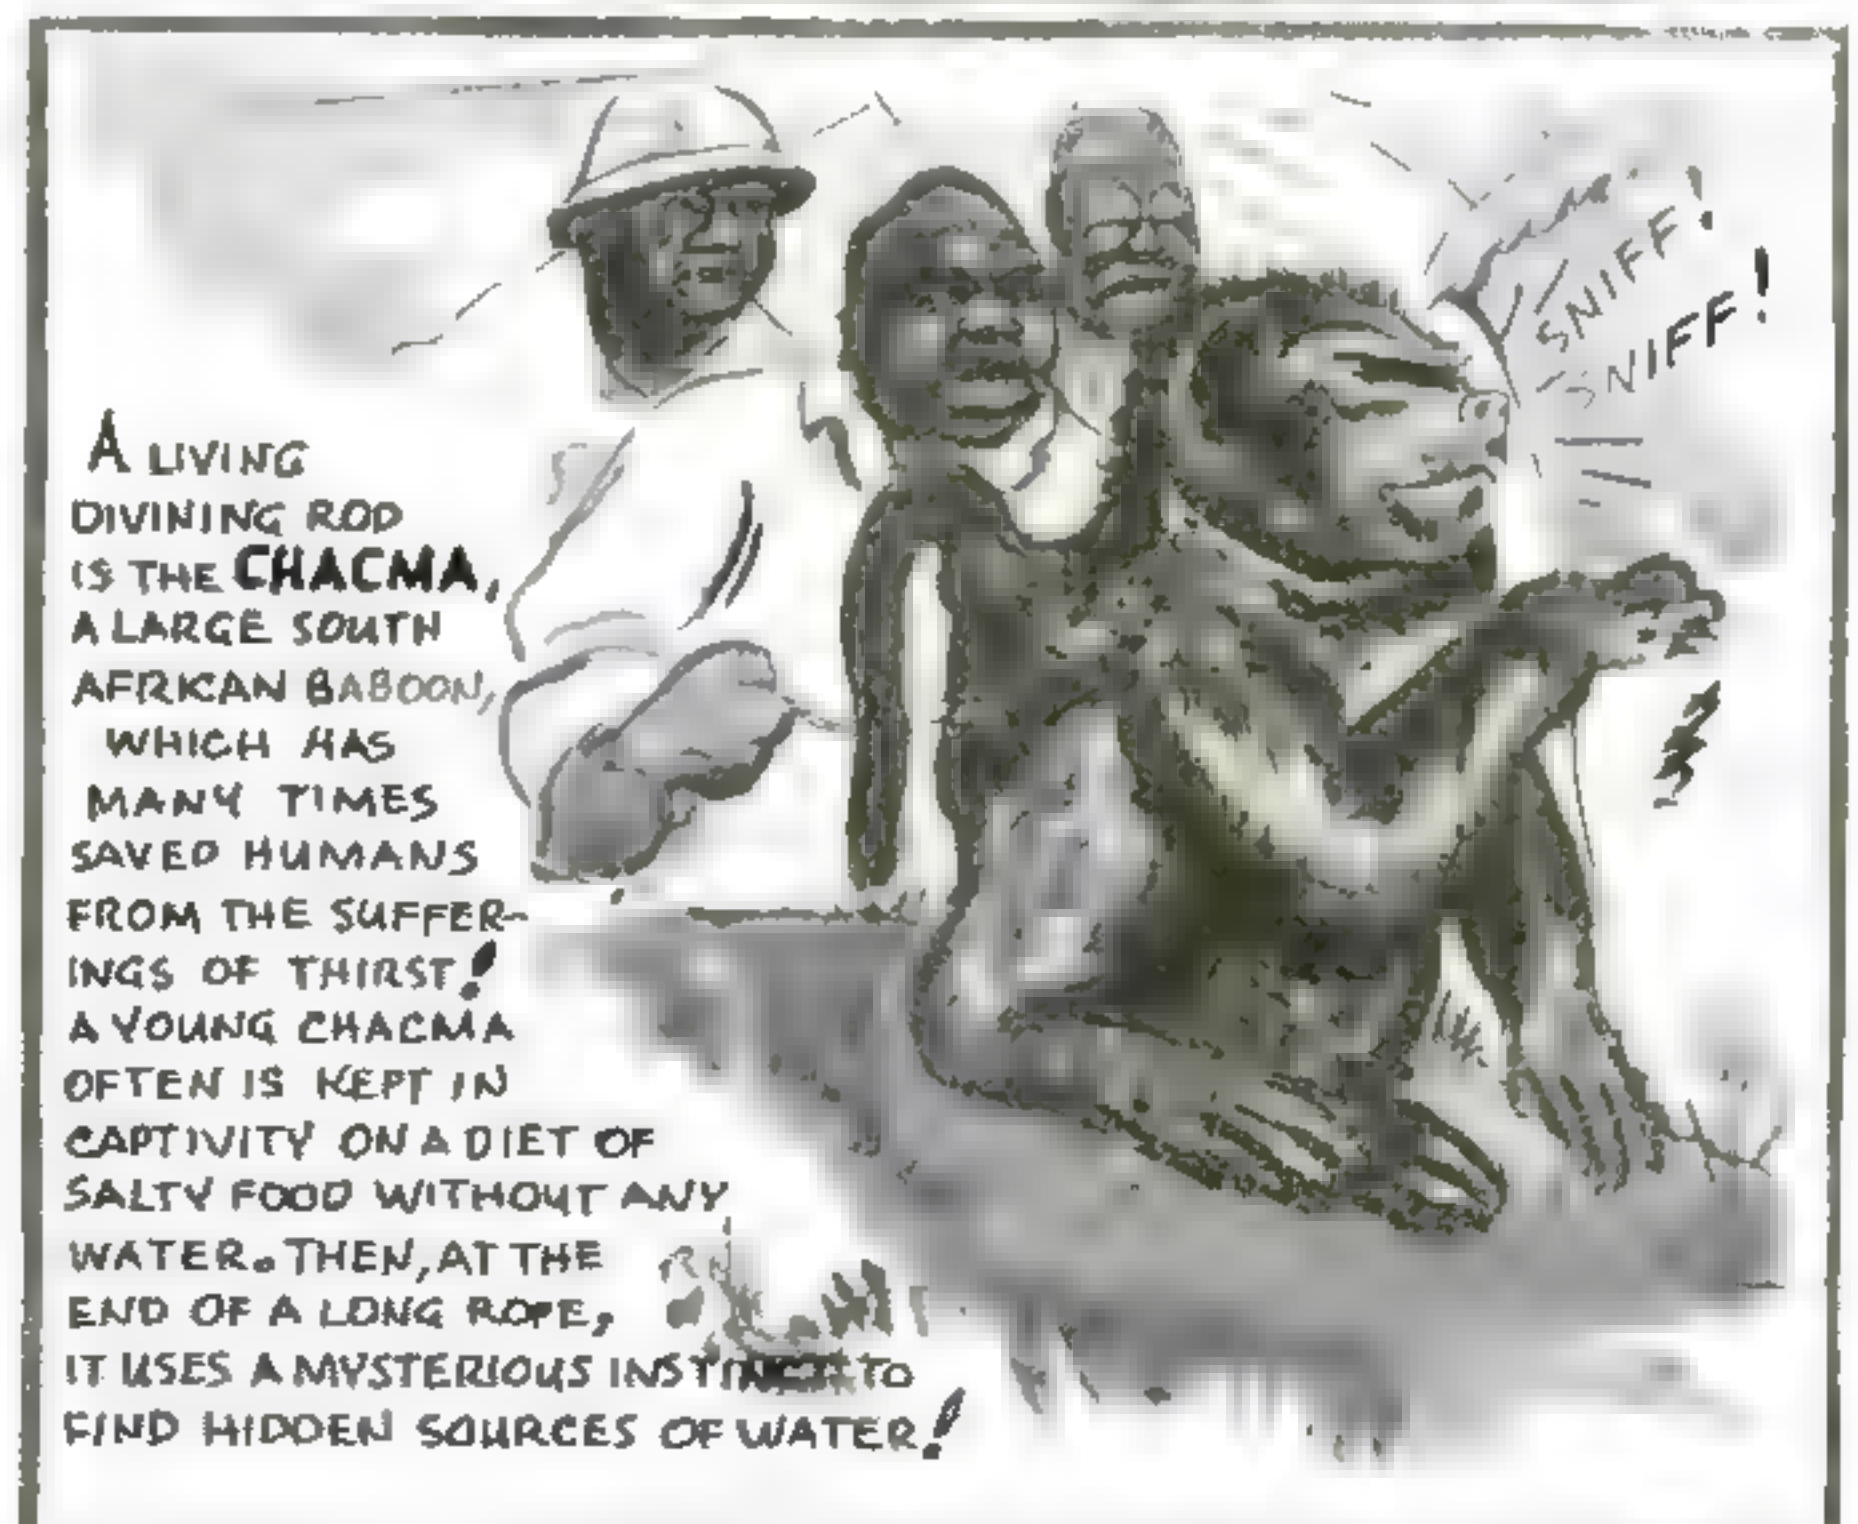 A LIVING
DIVINING ROD
IS THE CHACMA,
A LARGE SOUTH
AFRICAN BABOON,
WHICH HAS
MANY TIMES
SAVED HUMANS
FROM THE SUFFER-
INGS OF THIRST!
A YOUNG CHACMA
OFTEN IS KEPT IN
CAPTIVITY ON A DIET OF
SALTY FOOD WITHOUT ANY
WATER. THEN, AT THE
END OF A LONG ROPE,
IT USES A MYSTERIOUS INSTINCT TO
FIND HIDDEN SOURCES OF WATER!
SNIFF!
SNIFF!